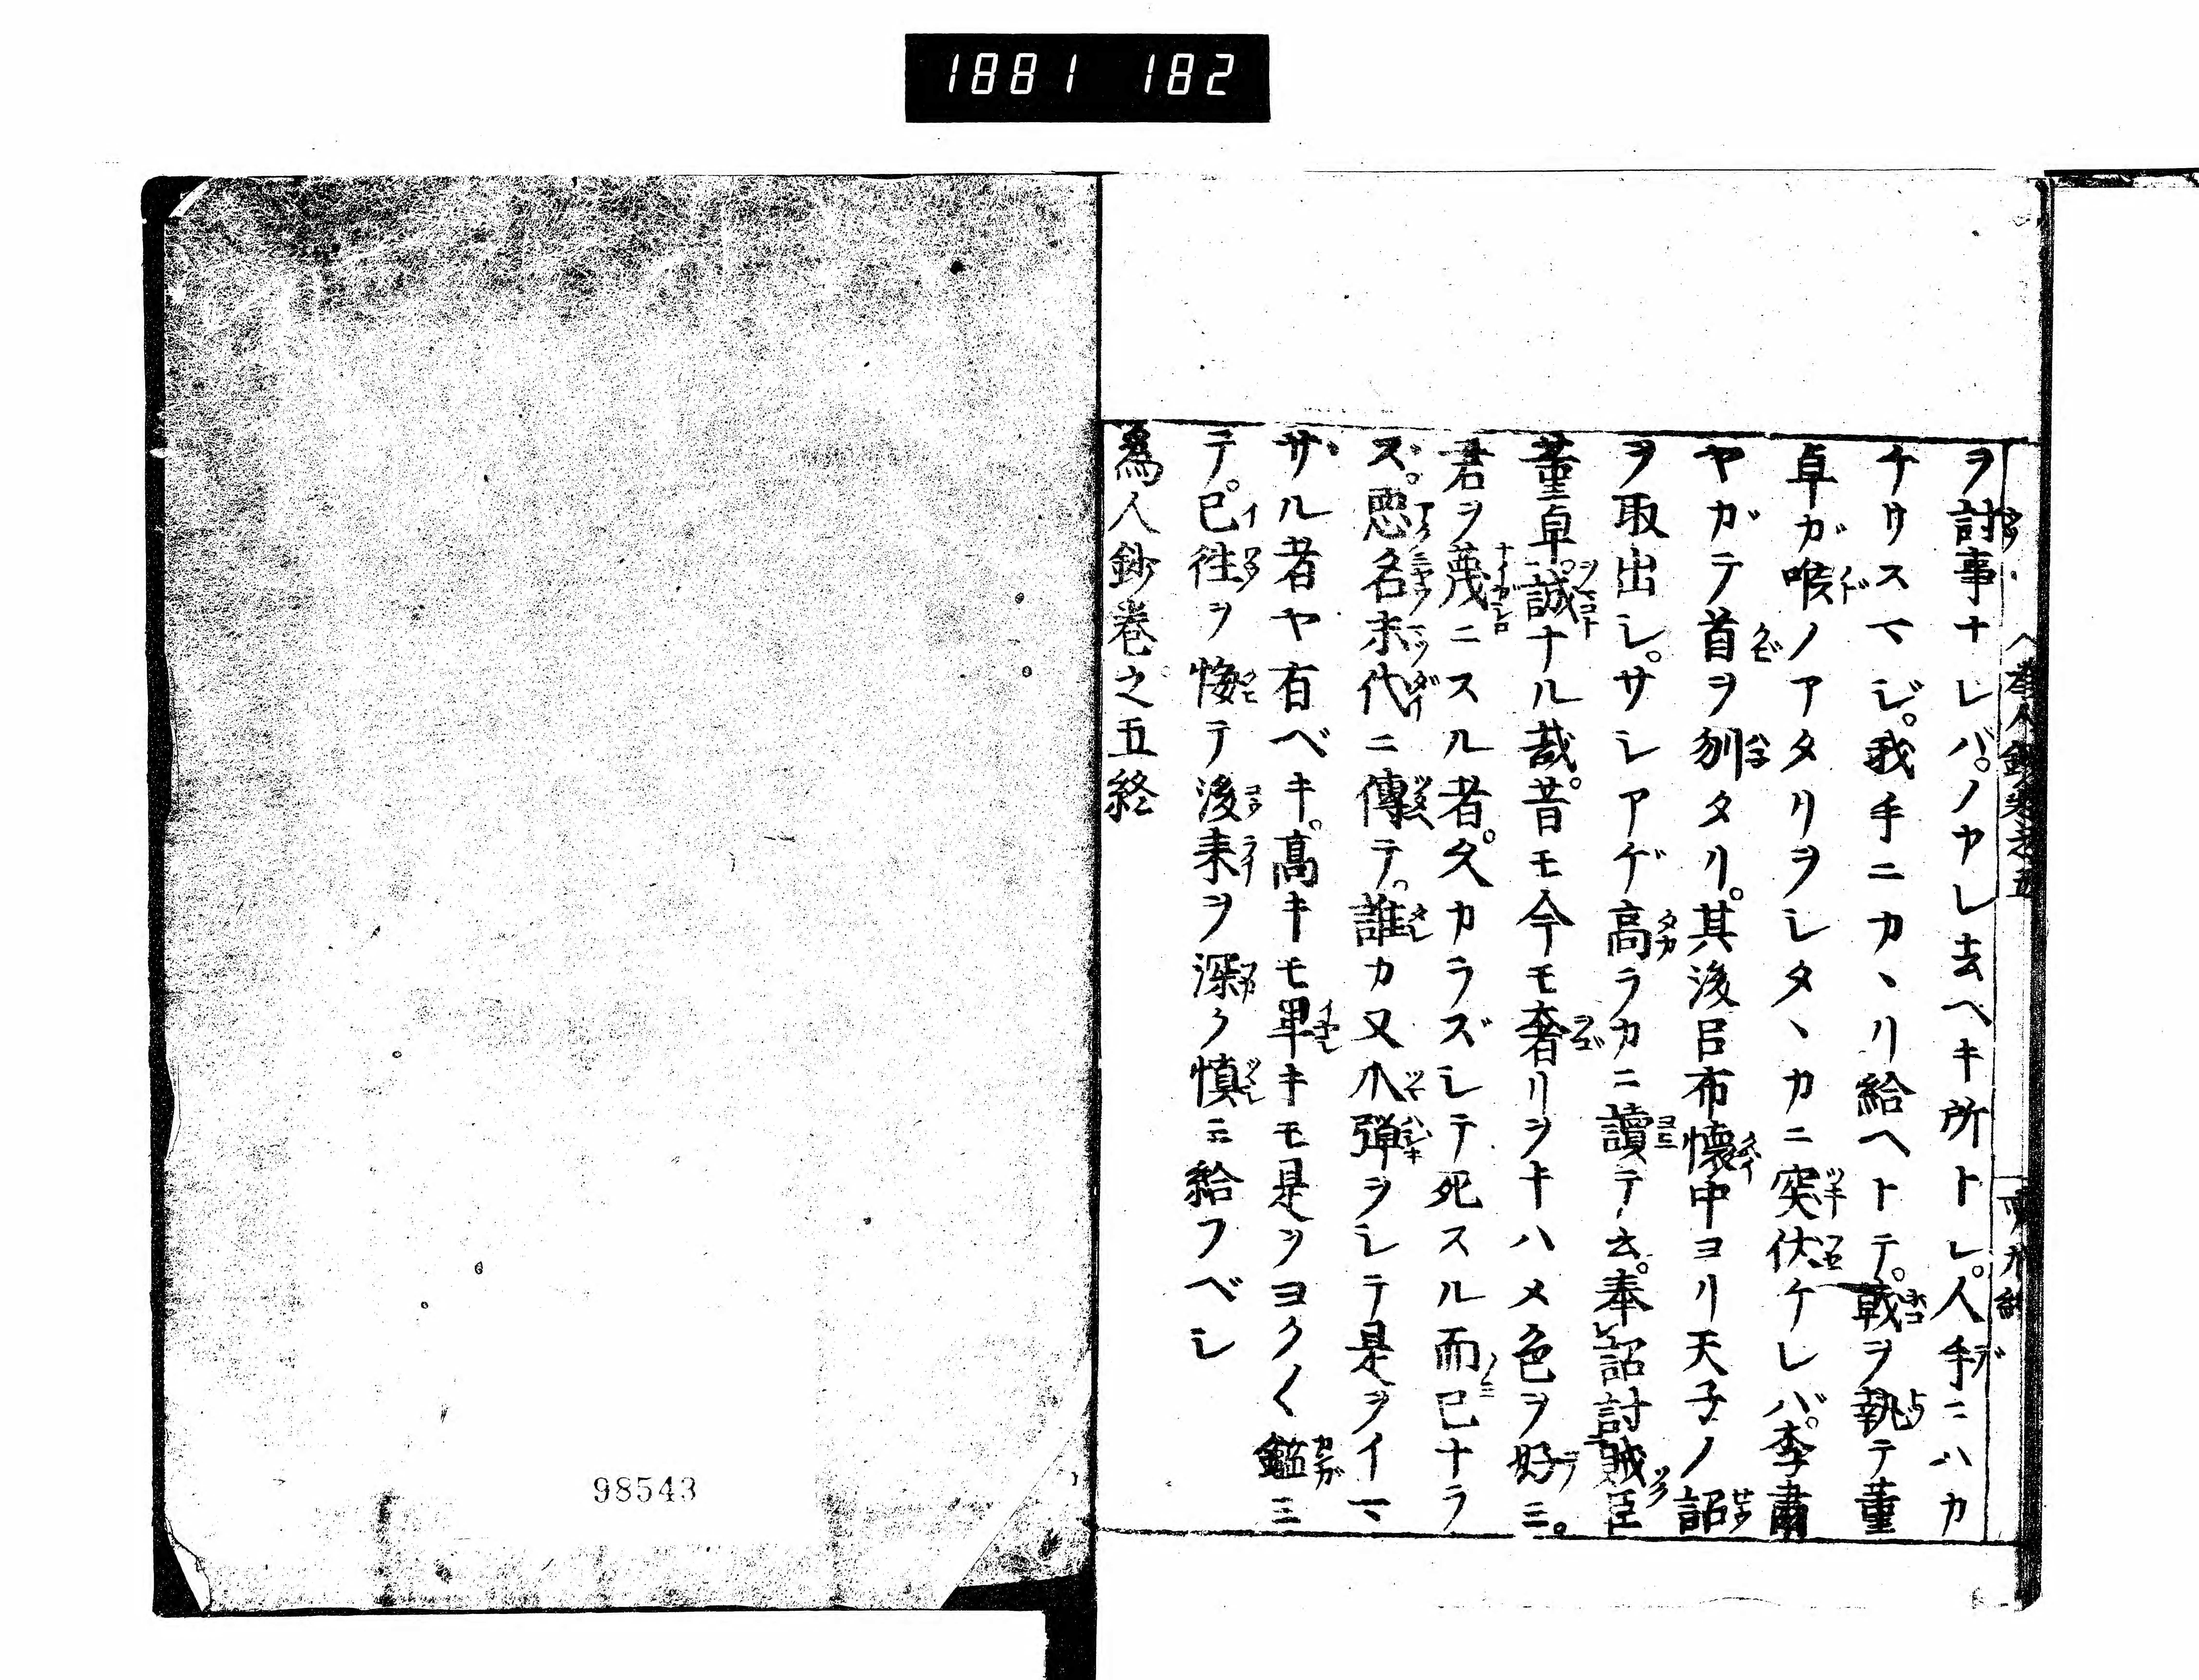 1881 182
ヲ討事ナレバ。ノヤレ去ヘキ所トレ。人手ニハカ
ケリスマジ。我手ニカヽリ給ヘトテ。戟ヲ執テ董
卓ガ喉ノアタリヲシタヽカニ突伏ケレバ。李肅
ヤガテ首ヲ刎タリ。其後呂布懐中ヨリ天子ノ詔
ヲ取出シ。サシアゲ高ラカニ讀テ云。奉詔討賊臣
董卓。誠ナル哉。昔モ今モ奢リヲキハメ色ヲ好ミ。
君ヲ蔑ニスル者。久カラズシテ死スル而已ナラ
ズ。悪名末代ニ傳テ。誰カ又爪弾ヲシテ是ヲイマ
ザル者ヤ有ベキ。高キモ卑キモ是ヲヨク〱鑑ミ
テ。已往ヲ悔テ後来ヲ深ク慎ミ給フベシ
為人鈔巻之五終
98543